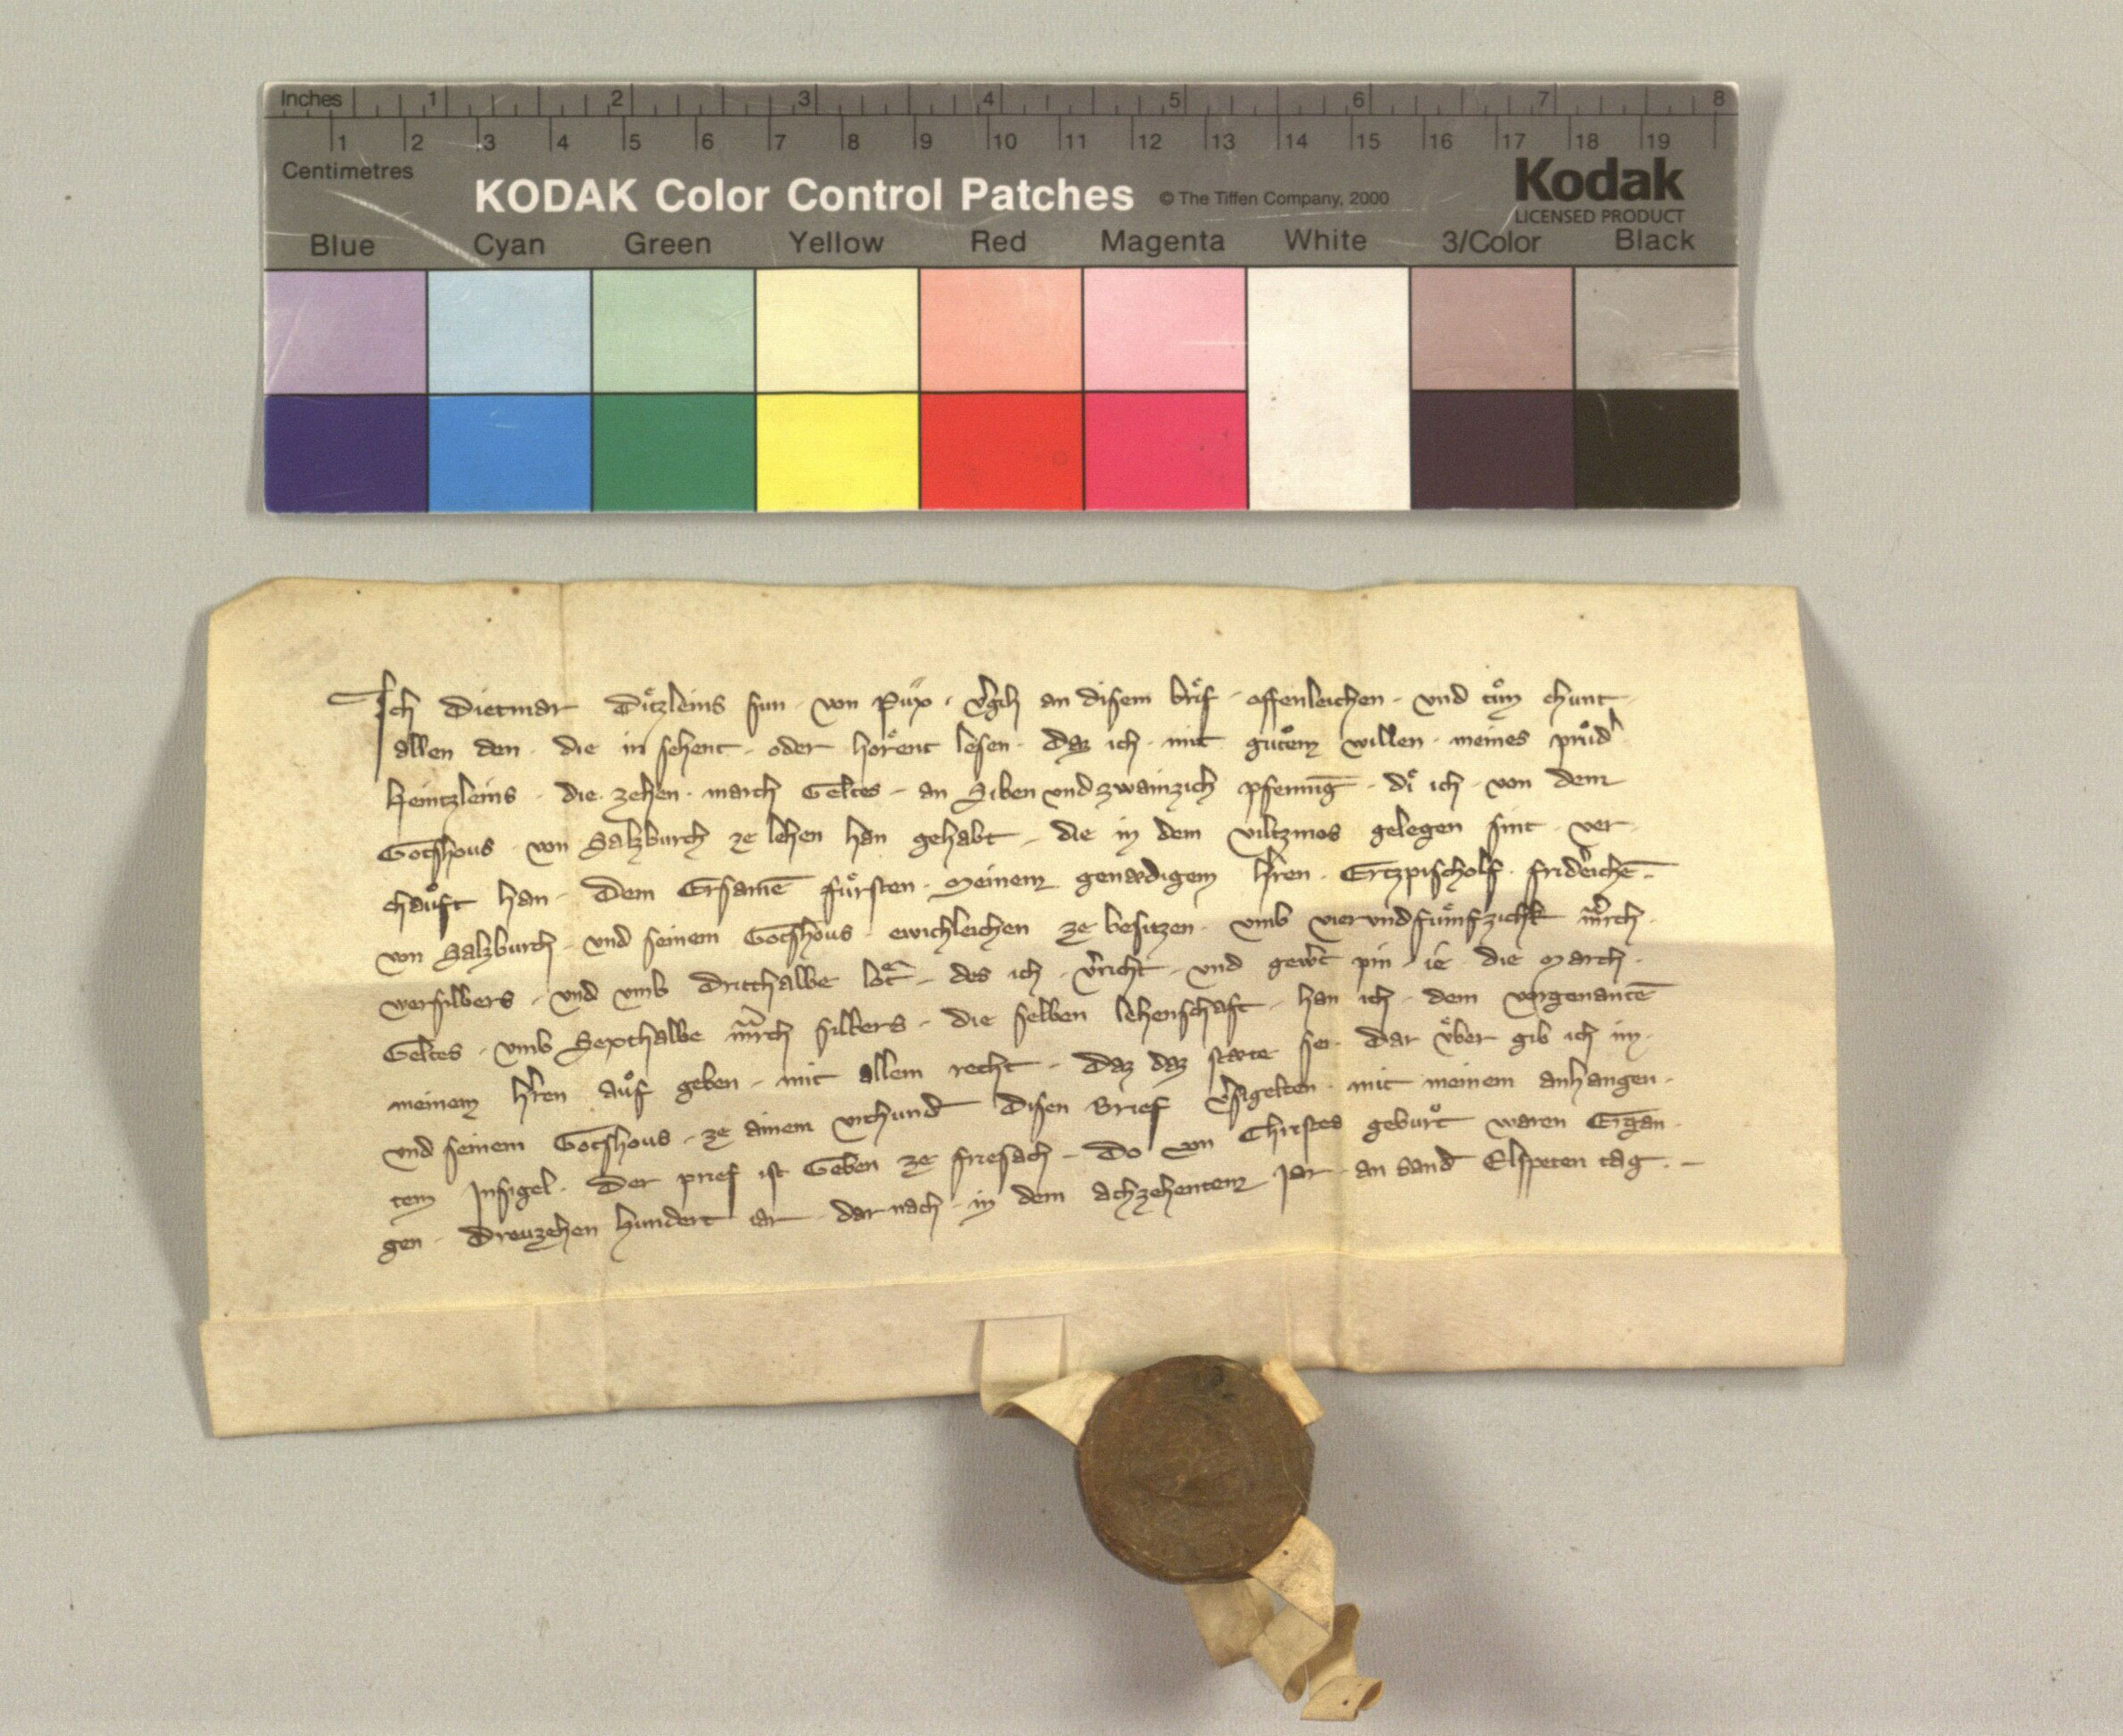 Inches 1 2 3 4 5 6 7 8
1 2 3 4 5 6 7 8 9 10 11 12 13 14 15 16 17 18 19
Centimetres
KODAK Color Control Patches © The Tiffen Company, 2000 Kodak
LICENSED PRODUCT
Blue Cyan Green Yellow Red Magenta White 3/Color Black
Ich Dietmar Ditzleins sun · von Püx · v̾gih an disem brͤif · offenleichen · vnd tuͦn chunt ·
allen den · die in sehent · oder horͤent lesen · daz ich · mit gutem willen · meines prud̾
Heintzleins · die zehen · march Geltes – an Siben vnd zwainzich pfennīg · diͤ ich · von dem
Gotshous · von Salzburch ze lehen han gehabt – die in dem viltzmos gelegen sint · ver·
chauͦft han · Dem Ersamē fuͤrsten · Meinem genædigem h̾ren · Ertzpischolf · frid̾eichē –
von Salzburch · vnd seinem Gotshous · ewichleichen ze besitzen · vmb vierundfuͤmfzichk march ·
wersilbers · vnd vmb dritthalbe lot – des ich · v̾richt · vnd gew̾t pin · ie · die March ·
Geltes · vmb Sexthalbe march silbers – die selben lehenschaft · han ich · dem vorgenantē
meinem h̾ren auͦf geben – mit allem recht – Daz daz stæte sei · Dar vͤber gib ich im ·
vnd seinem Gotshous – ze ainem vrchund Disen Brief v̾sigelten · mit meinem anhangen ·
tem Insigel · Der prief ist Geben ze friesach – Do von Christes geburt waren Ergan ·
gen · Dreuzehen hundert iar · dar nach · in dem achzehentem Jar · an sand Elspeten tag · –